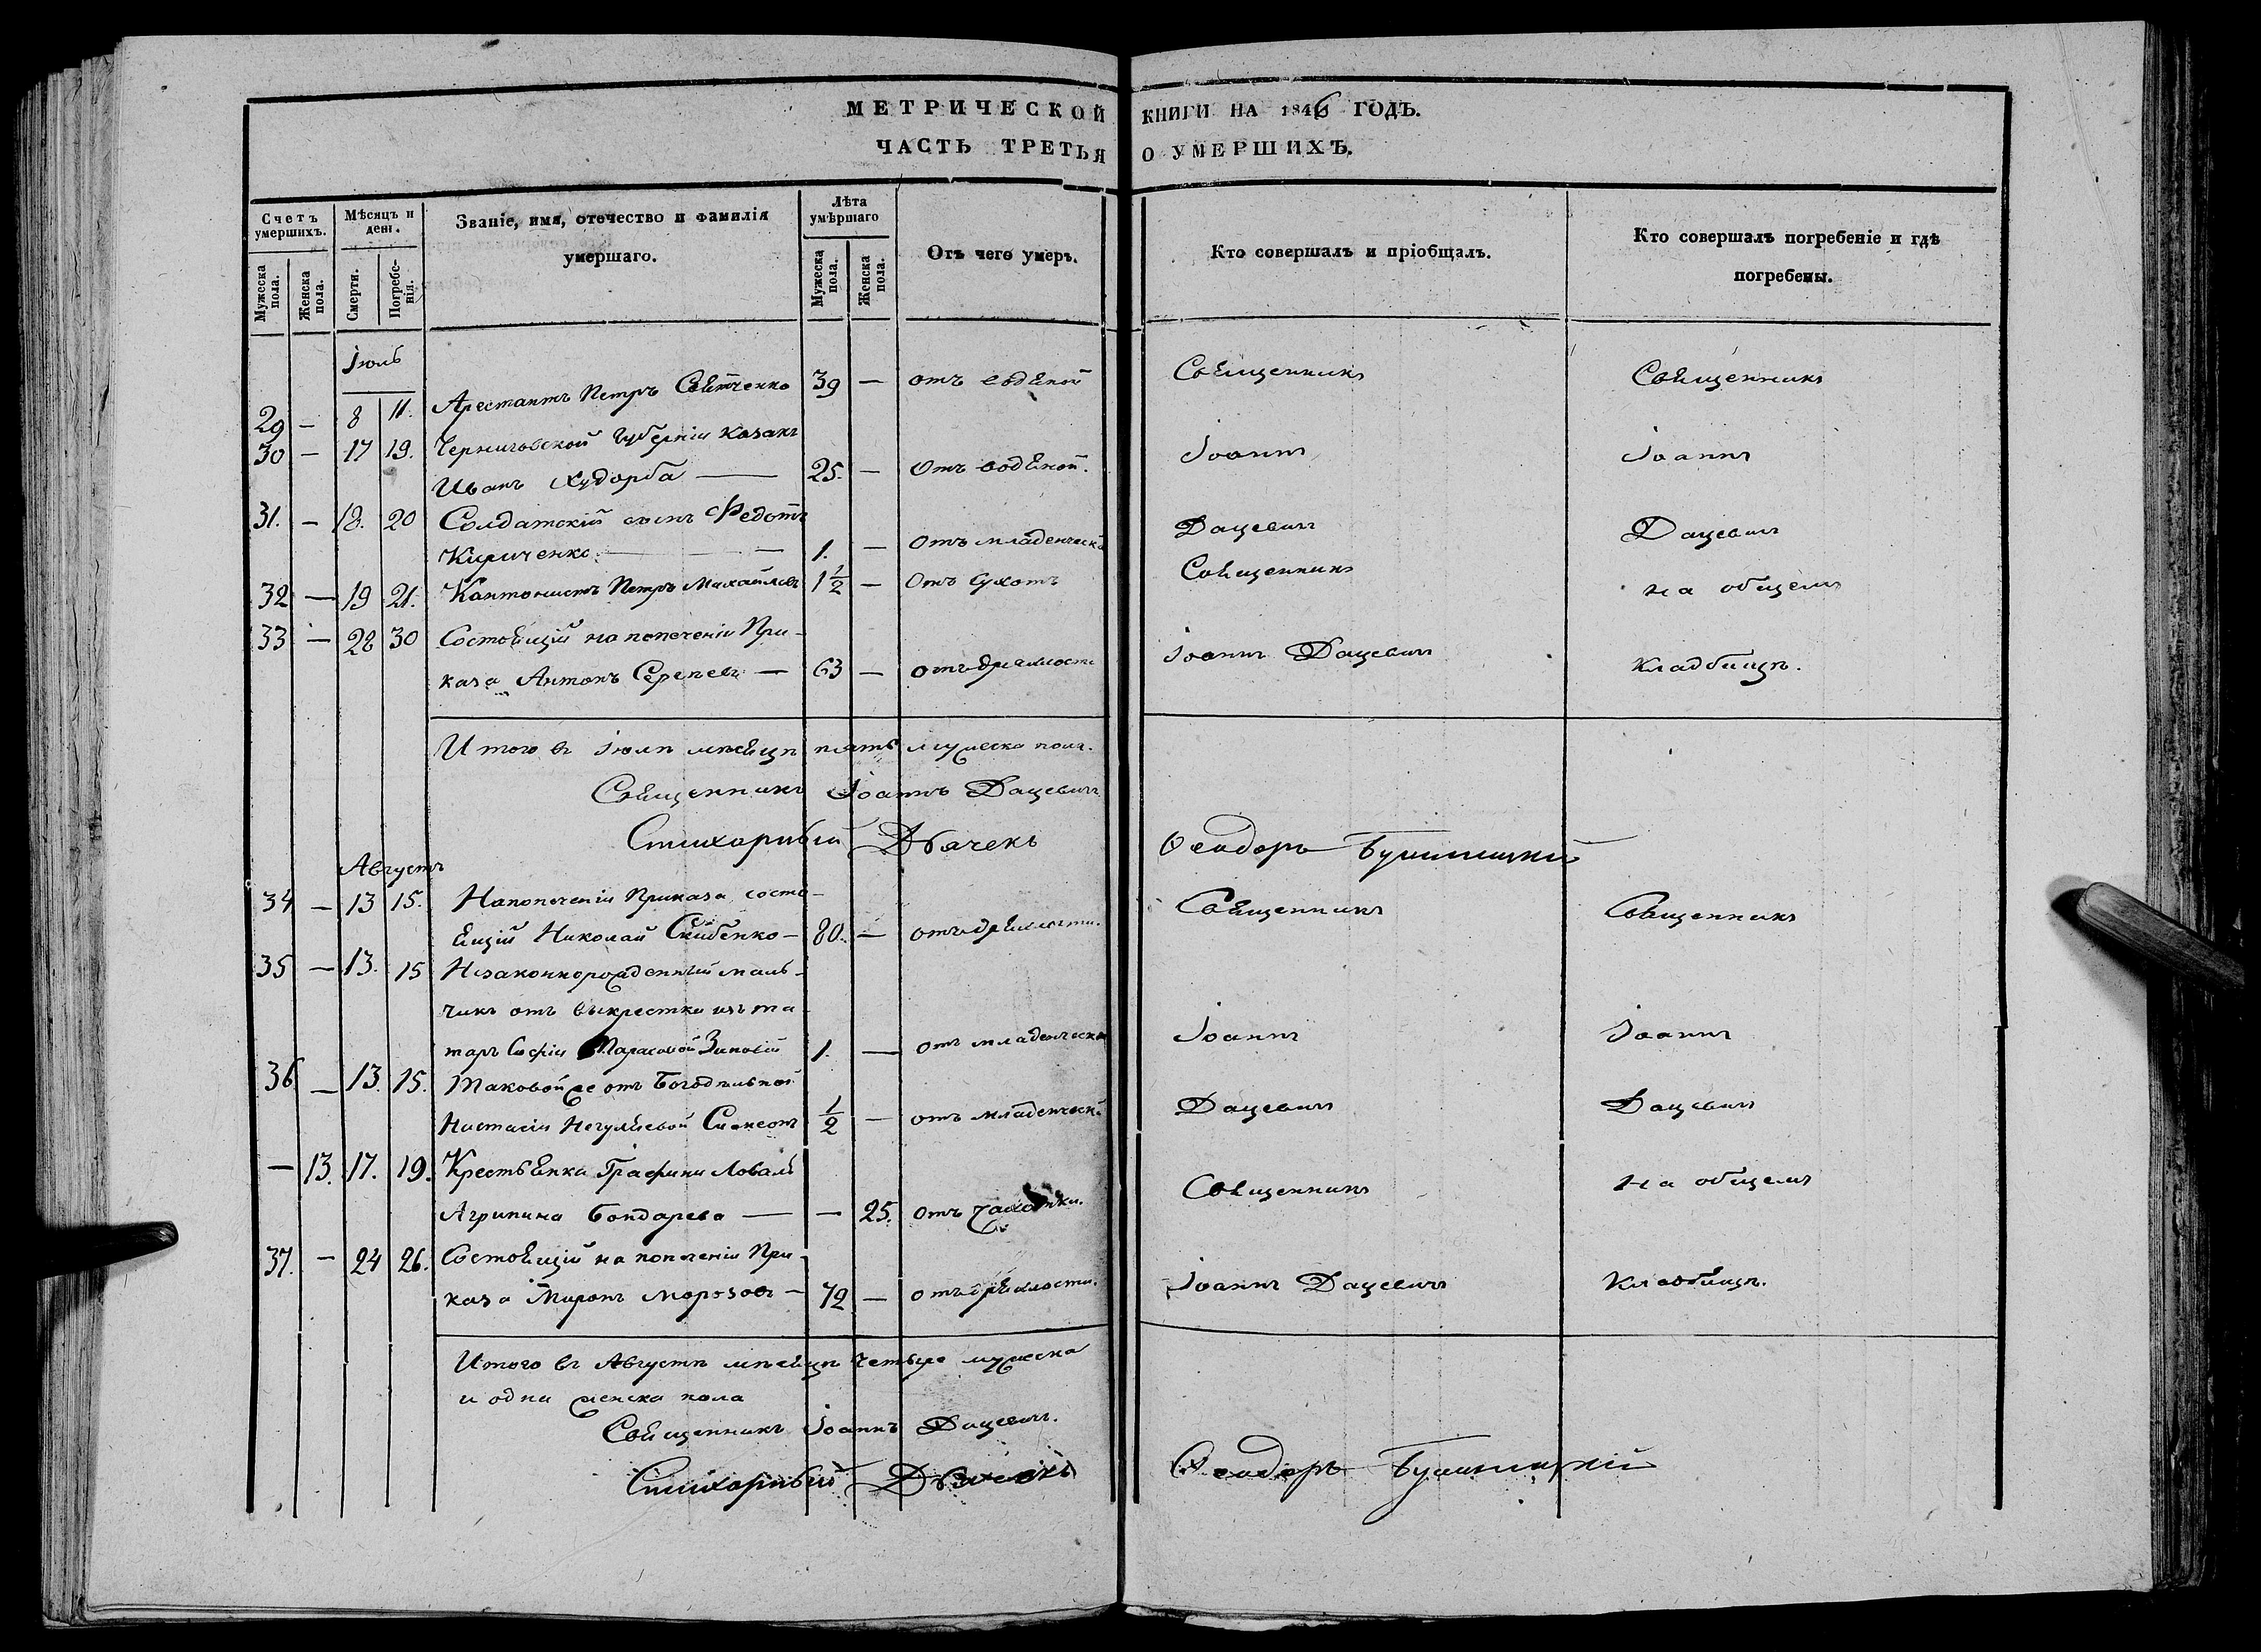 МЕТРИЧЕСКОЙ КНИГИ НА 1846 ГОДЪ.
ЧАСТЬ ТРЕТЬЯ О УМЕРШИХЪ.
Счетъ умершихъ.
Мужеска пола.
Женска пола.
Мѣсяцъ и дені.
Смерти.
Погребенія.
Званіе, имя, отечество и фамилія
умершаго.
Лѣта умѣршаго
Мужеска пола.
Женска пола.
Отъ чего умеръ.
Кто совершалъ и пріобщалъ.
Кто совершалъ погребеніе и гдѣ
погребены.
Іюль
29 — 8 11. Арестантъ Петръ 39 — отъ водяной Священникъ Священникъ
30 — 17 19. Черниговской Губерніи козакъ
Иванъ Худорба — 25. — Отъ водяной. Іоаннъ Іоаннъ
31. — 18. 20 Солдатскій сынъ Федотъ
Кириченко — 1. — Отъ младенческ Дацевичъ Дацевичъ
32 — 19 21. Кантонистъ Петръ Михайловъ 1½ — Отъ сухотъ Священникъ на общемъ
33 — 28 30 Состоящій на попеченіи При-
каза Антонъ — 63 — отъ дряхлости Іоаннъ Дацевичъ Кладбищѣ.
Итого въ Іюлѣ мѣсяцѣ пять мужеска пола.
Священникъ Іоаннъ Дацевичъ
Стихарный Дьячекъ Ѳеодоръ
Августъ
34 — 13 15. На попеченіи Приказа состо-
ящій Николай — 80. — отъ дряхлости. Священникъ Священникъ
35 — 13. 15 Незаконнорожденный маль-
чикъ отъ выкрестки изъ та-
таръ Софіи Тарасовой Зиновій 1. — отъ младенческ Іоаннъ Іоаннъ
36. — 13. 15. Таковой же отъ Богодѣльной
Настасіи Негуляевой Симеонъ ½ — отъ младенческ Дацевичъ Дацевичъ
— 13. 17. 19. Крестьянка Графини Лаваль
Агрипина Бондарева — — 25. отъ чахотки. Священникъ на общемъ
37. — 24 26. Состоящій на попеченіи При-
каза Миронъ Морозовъ — 72 — отъ дряхлости. Іоаннъ Дацевичъ Кладбищѣ.
Итого въ Августѣ мѣсяцѣ четыре мужеска
и одна женска пола
Священникъ Іоаннъ Дацевичъ.
Стихарный Дьячекъ Ѳеодоръ